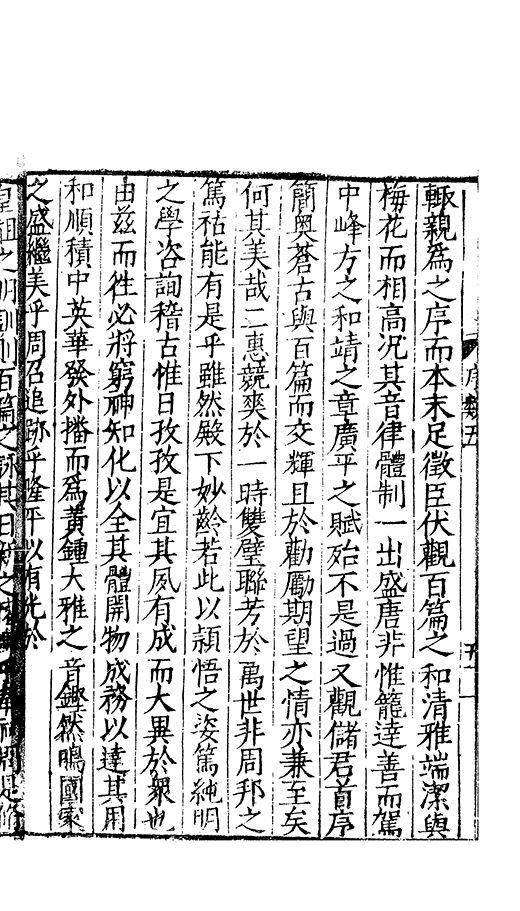 序類五
輙親為之序而本末足徵臣伏觀百篇之和清雅端潔與
梅花而相高況其音律體制一出盛唐非惟籠逹善而駕
中峰方之和靖之章廣平之賦殆不是過又觀儲君首序
簡奥蒼古與百篇而交輝且於勸勵期望之情亦兼至矣
何其美哉二惠競爽於一時雙璧聯芳於萬世非周邦之
篤祜能有是乎雖然殿下妙齡若此以頴悟之姿篤純明
之學咨詢稽古惟日孜孜是宜其夙有成而大異於衆也
由兹而徃必將窮神知化以全其體開物成務以達其用
和順積中英華發外播而為黃鍾大雅之音鏗然鳴國家
之盛繼美乎周召追跡乎隆平以有光於
皇祖之明訓則百篇之詠其日新之